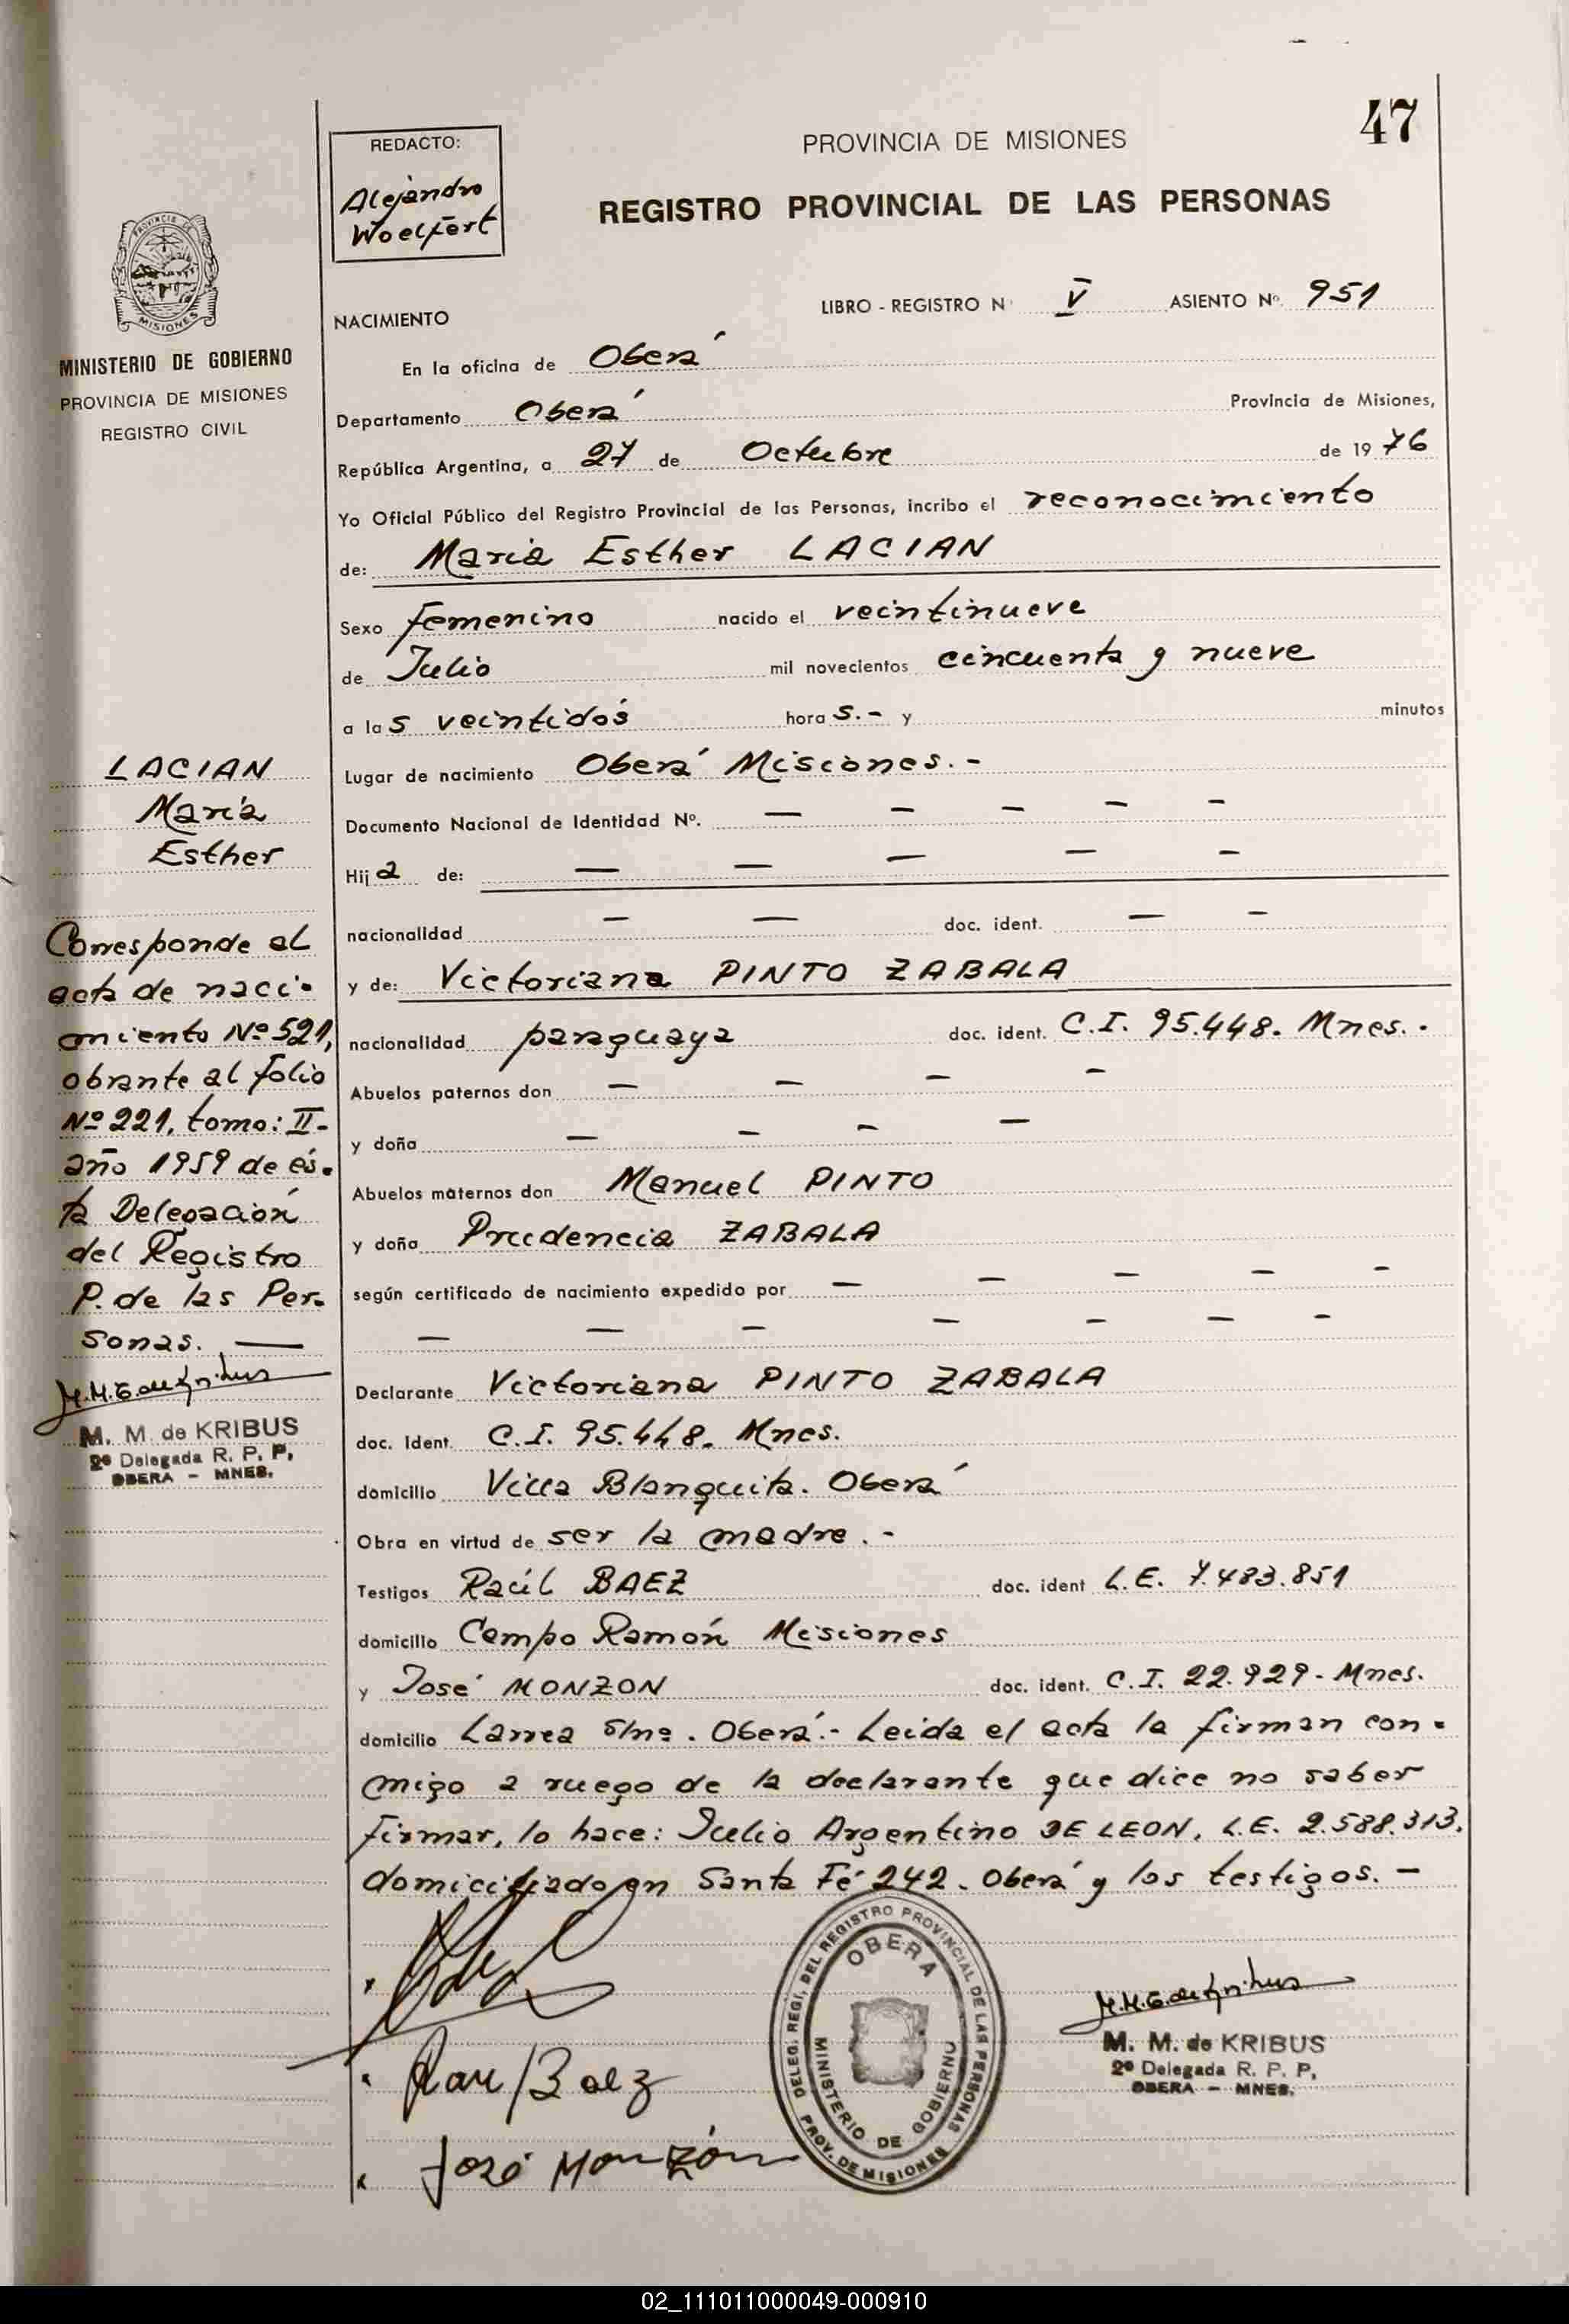 47
REDACTO:
Alejandro
Woelfert
PROVINCIA DE MISIONES
REGISTRO PROVINCIAL DE LAS PERSONAS
MISIONES
MINISTERIO DE GOBIERNO
PROVINCIA DE MISIONES
REGISTRO CIVIL
LIBRO - REGISTRO Nº V ASIENTO Nº. 951
NACIMIENTO
En la oficina de Oberá
Departamento Oberá Provincia de Misiones,
República Argentina, a 27 de Octubre de 1976
Yo Oficial Público del Registro Provincial de las Personas, incribo el reconocimiento
de: Maria Esther LACIAN
Sexo femenino nacido el veintinueve
de Julio mil novecientos cincuenta y nueve
a las veintidós horas.- y minutos
Lugar de nacimiento Oberá Misiones.-
Documento Nacional de Identidad Nº. — — — — —
Hija de: — — — — —
nacionalidad — — doc. ident. — —
y de: Victoriana PINTO ZABALA
nacionalidad paraguaya doc. ident. C.I. 95.448. Mnes.-
Abuelos paternos don — — — —
y doña — — — —
Abuelos maternos don Manuel PINTO
y doña Prudencia ZABALA
según certificado de nacimiento expedido por — — — — —
— — — — — — —
Declarante Victoriana PINTO ZABALA
doc. Ident. C.I. 95.448. Mnes.
domicilio Villa Blanquita. Oberá
Obra en virtud de ser la madre.-
Testigos Raúl BAEZ doc. ident L.E. 7.483.851
domicilio Campo Ramón Misiones
y José MONZON doc. ident. C.I. 22.929- Mnes.
domicilio Larrea s/nº. Oberá.- Leida el acta la firman con-
migo a ruego de la declarante que dice no saber
firmar, lo hace: Julio Argentino DE LEON, L.E. 2.588.313.
domiciliado en Santa Fé 242. Oberá y los testigos.—
LACIAN
María
Esther
Corresponde al
acta de naci-
miento Nº 521,
obrante al folio
Nº 221, tomo: II-
año 1959 de és-
ta Delegación
del Registro
P. de las Per-
sonas. —
M. M. de KRIBUS
2º Delegada R. P. P.
OBERA - MNES.
Raul Baez
José Monzón
DELEG. REGI. DEL REGISTRO PROVINCIAL DE LAS PERSONAS
OBERA
MINISTERIO DE GOBIERNO
PROV. DE MISIONES
M. M. de KRIBUS
2º Delegada R. P. P.
OBERA - MNES.
02_111011000049-000910